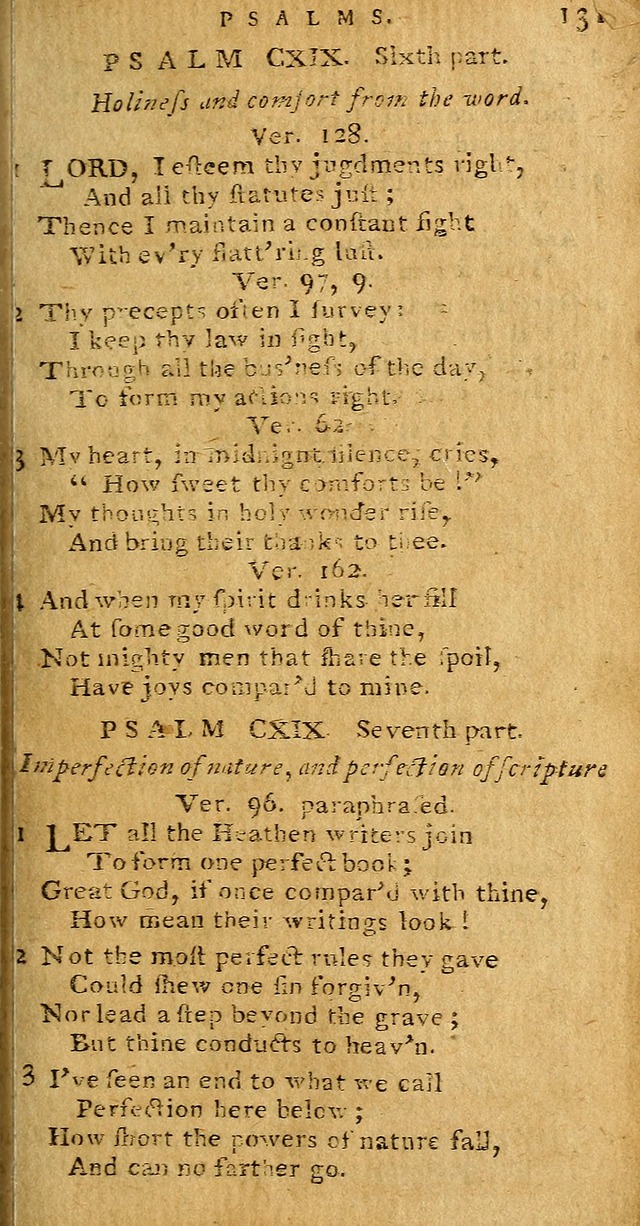 PSALMS. 131
PSALM CXIX. Sixth part.
Holineſs and comfort from the word.
Ver. 128.
1 LORD, I eſteem thy jugdments right,
And all thy ſtatutes juſt;
Thence I maintain a conſtant fight
With ev'ry flatt'ring luſt.
Ver. 97, 9.
2 Thy precepts often I ſurvey:
I keep thy law in ſight,
Through all the bus'neſs of the day,
To form my actions right.
Ver. 62.
3 My heart, in midnight ſilence, cries,
“ How ſweet thy comforts be !”
My thoughts in holy wonder riſe,
And bring their thanks to thee.
Ver. 162.
4 And when my ſpirit drinks her fill
At ſome good word of thine,
Not mighty men that ſhare the ſpoil,
Have joys compar'd to mine.
PSALM CXIX. Seventh part.
Imperfection of nature, and perfection of ſcripture
Ver. 96. paraphraſed.
1 LET all the Heathen writers join
To form one perfect book;
Great God, if once compar'd with thine,
How mean their writings look!
2 Not the moſt perfect rules they gave
Could ſhew one ſin forgiv'n,
Nor lead a ſtep beyond the grave;
But thine conducts to heav'n.
3 I've ſeen an end to what we call
Perfection here below;
How ſhort the powers of nature fall,
And can no farther go.